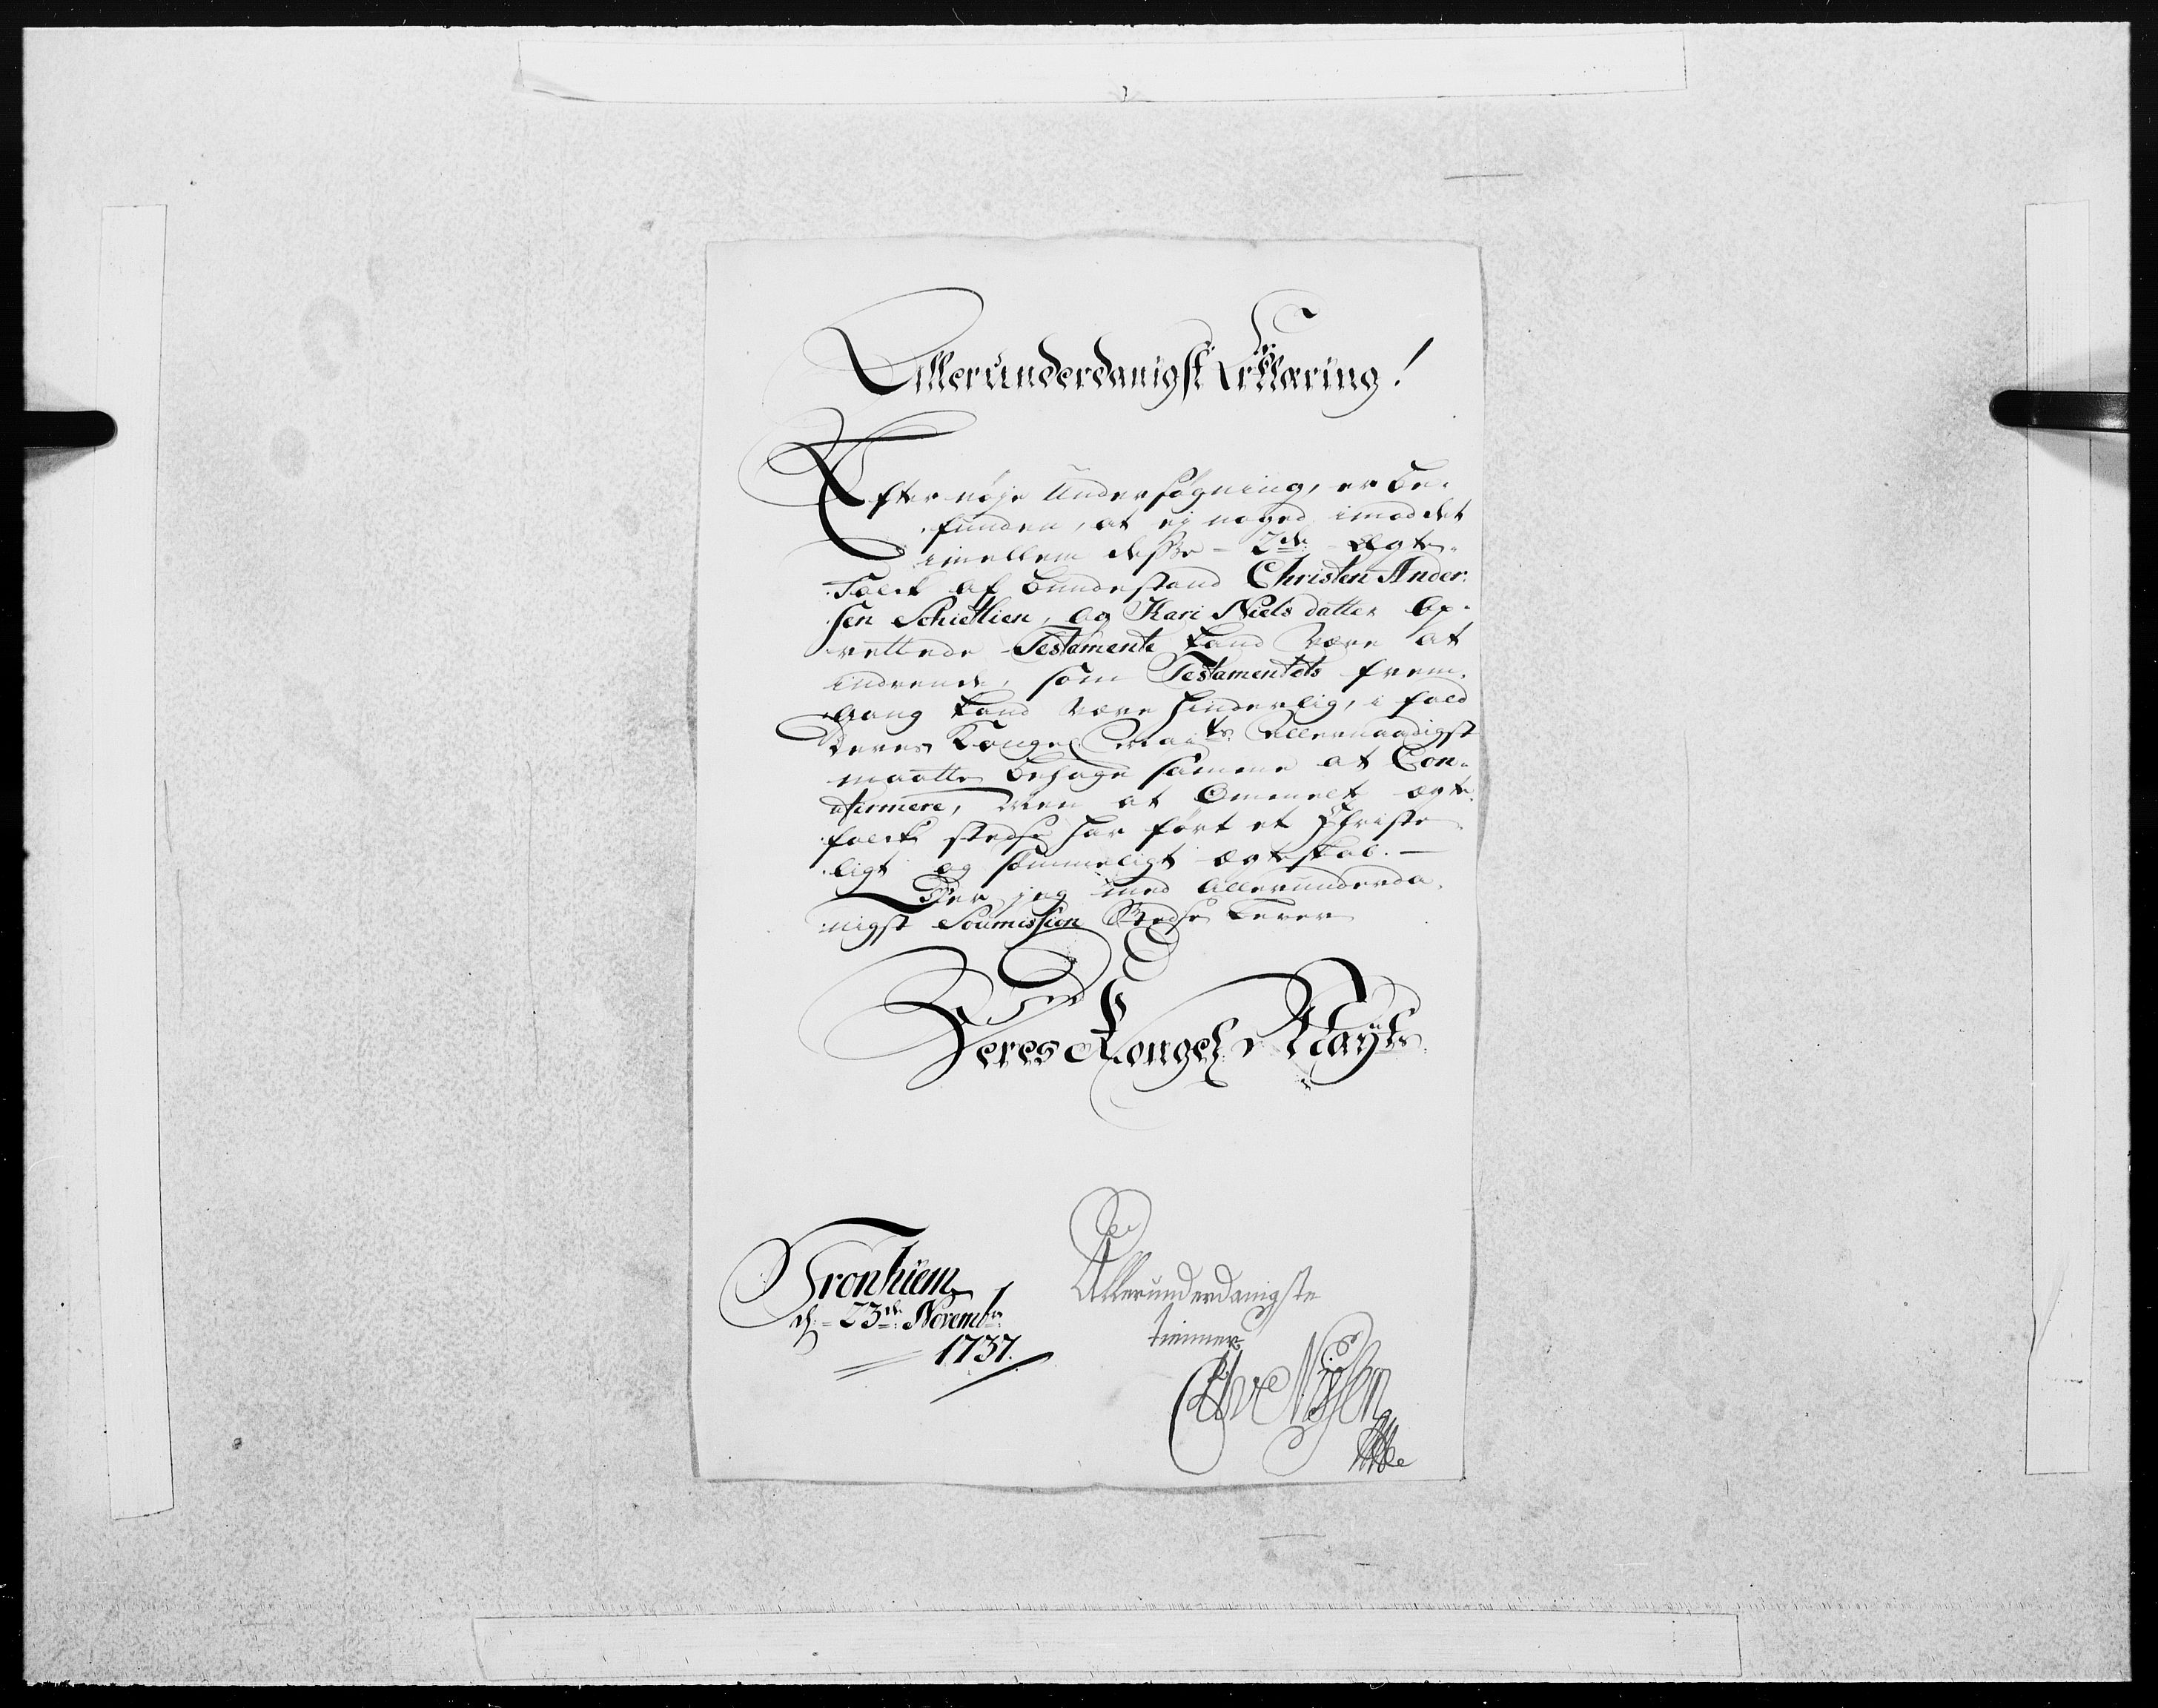 Allerunderdanigst Erklæring!
Efter nøje Undersøgning, er be-
funden, at ej noged imod det
imellem desse 2de Ægte-
Folck af bundestand Christen Ander-
sen Schietlien, og Kari Niels datter Op-
rettede Testamente kand være at
indvende, som Testamentets frem-
gang kand være hinderlig, i fald
Deres Kongel Maÿts Allernaadigst
maatte behage samme at Con-
firmere, Men at Ommelt ægte-
folck stedse har ført et Christe-
ligt og sømmeligt ægteskab. —
Der jeg med Allerunderda-
nigst Soumission Stedse lever
Deres Kongel Mayts
Tronhiem
d: 23de Novembr:
1737.
Allerunderdanigste
tienner
Nissen